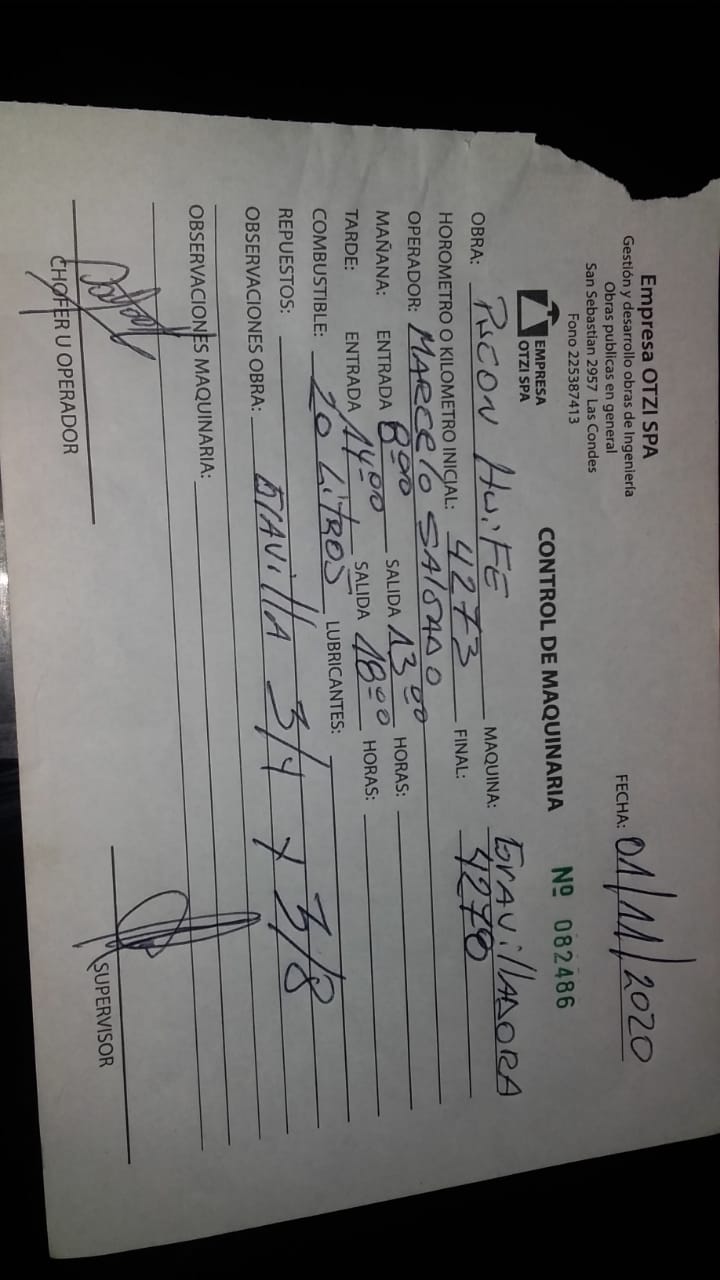 Empresa OTZI SPA
Gestión y desarrollo obras de Ingeniería
Obras publicas en general
San Sebastian 2957 Las Condes
Fono 225387413
FECHA: 01/11/2020
EMPRESA
OTZI SPA
CONTROL DE MAQUINARIA Nº 082486
OBRA: RiCON HuiFE MAQUINA: GRAVillADORA
HOROMETRO O KILOMETRO INICIAL: 4273 FINAL: 4278
OPERADOR: MARCElo SAlGADO
MAÑANA: ENTRADA 8:00 SALIDA 13:00 HORAS:
TARDE: ENTRADA 14:00 SALIDA 18:00 HORAS:
COMBUSTIBLE: 20 LitROS LUBRICANTES:
REPUESTOS:
OBSERVACIONES OBRA: GRAVillA 3/4 x 3/8
OBSERVACIONES MAQUINARIA:
CHOFER U OPERADOR SUPERVISOR